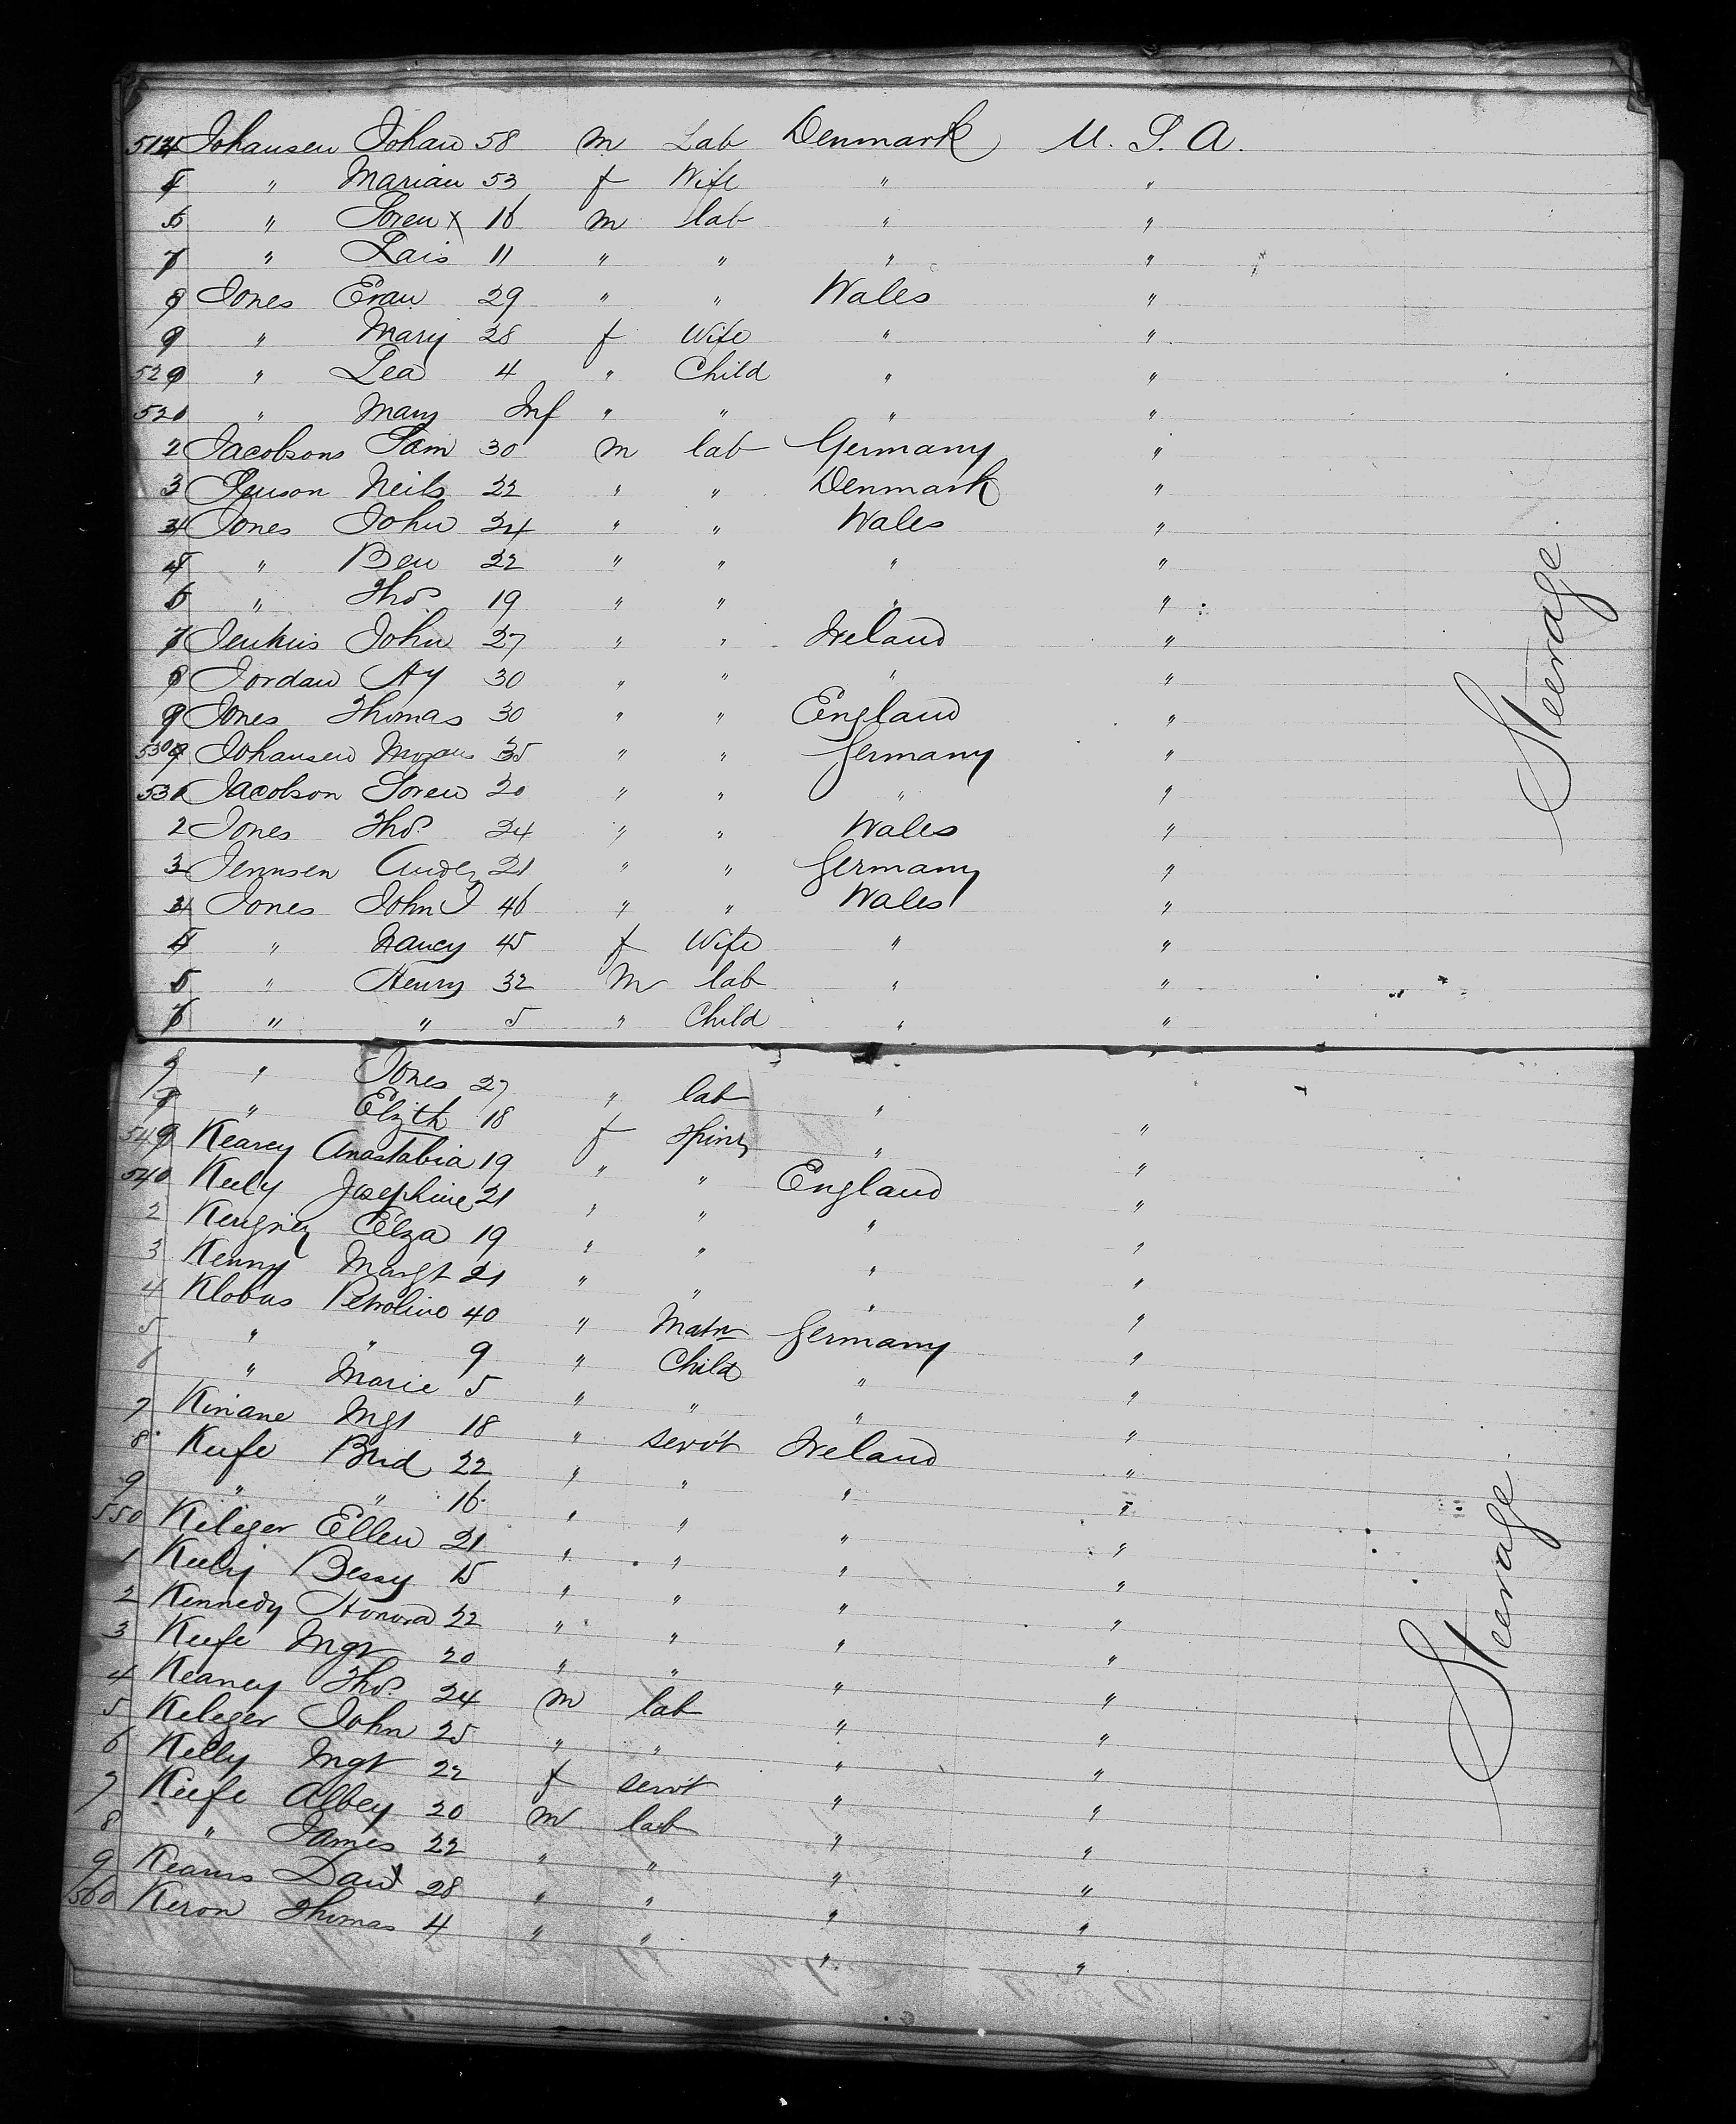 514 Johansen Johan 58 m Lab Denmark U. S. A.
5 " Marian 53 f Wife " "
6 " Soren x 16 m lab " "
7 " Lais 11 " " " "
8 Jones Evan 29 " " Wales "
9 " Mary 28 f Wife " "
520 " Lea 4 " Child " "
" Mary Inf " " " "
2 Jacobsons Sam 30 m lab Germany "
3 Jenson Neils 22 " " Denmark "
4 Jones John 24 " " Wales "
5 " Ben 22 " " " "
6 " Thos 19 " " " "
7 Jenkins John 27 " " Ireland "
8 Jordan Hy 30 " " " "
9 Jones Thomas 30 " " England "
530 Johansen 35 " " Germany "
531 Jacobson Soren 20 " " " "
2 Jones Thos. 24 " " Wales "
3 Jennsen Ander 21 " " Germany "
4 Jones John J 46 " " Wales "
5 " Nancy 45 f Wife " "
6 " Henry 32 M lab " "
7 " " 5 " Child " "
" Jones 27 " lab " "
" Elzth 18 f Spinr " "
Kearey Anastabia 19 " " England "
Keely Josephine 21 " " " "
2 Eliza 19 " " " "
3 Kenny Margt 21 " " " "
4 Klobus Petroline 40 " Matrn Germany "
5 " " 9 " Child " "
6 " Marie 5 " " " "
7 Kinane Mgt 18 " servt Ireland "
8 Keefe Brid 22 " " " "
9 " " 16 " " " "
550 Kileger Ellen 21 " " " "
1 Keely Bessy 15 " " " "
2 Kennedy Honora 22 " " " "
3 Keefe Mgt 20 " " " "
4 Keaney Thos. 24 m lab " "
5 Kileger John 25 " " " "
6 Kelly Mgt 22 f servt " "
7 Keefe Albey 20 m lab " "
8 " James 22 " " " "
9 Kearns Danl 28 " " " "
560 Keron Thomas 4 " " " "
Steerage.
Steerage.